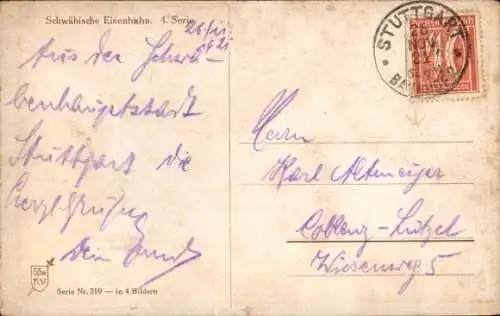 Schwäbische Eisenbahn. 4. Serie
26/11 21
Aus der Schwa-
benhauptstadt
Stuttgart die
herzl Grüße
Dein
STUTTGART
26
NOV
21
Herrn
Karl Altmeyer
Coblenz-Lützel
Wiesenweg 5
Serie Nr. 219 — in 4 Bildern